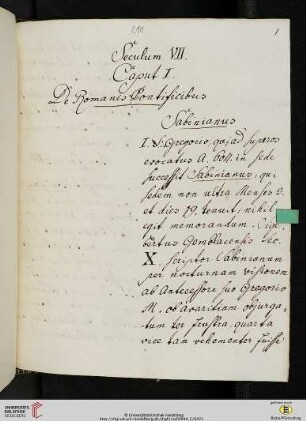 210
1
Seculum VII.
Caput I.
De Romanis Pontificibus
Sabinianus
I. S. Gregorio, ad superos
evocatus A. 604. in sede
successit Sabinianus, qui
sedem non ultra Menses 5.
et dies 19. tenuit, nihil
egit memorandum.
bertus Gemblacensis Sec.
X scriptor Sabinianum
per nocturnam visionem
ab Antecessore suo Gregorio
M. ob avaritiam objurga-
tum ter frustra, quarta
vice tam vehementer
UNIVERSITÄTS-
BIBLIOTHEK
HEIDELBERG
© Universitätsbibliothek Heidelberg